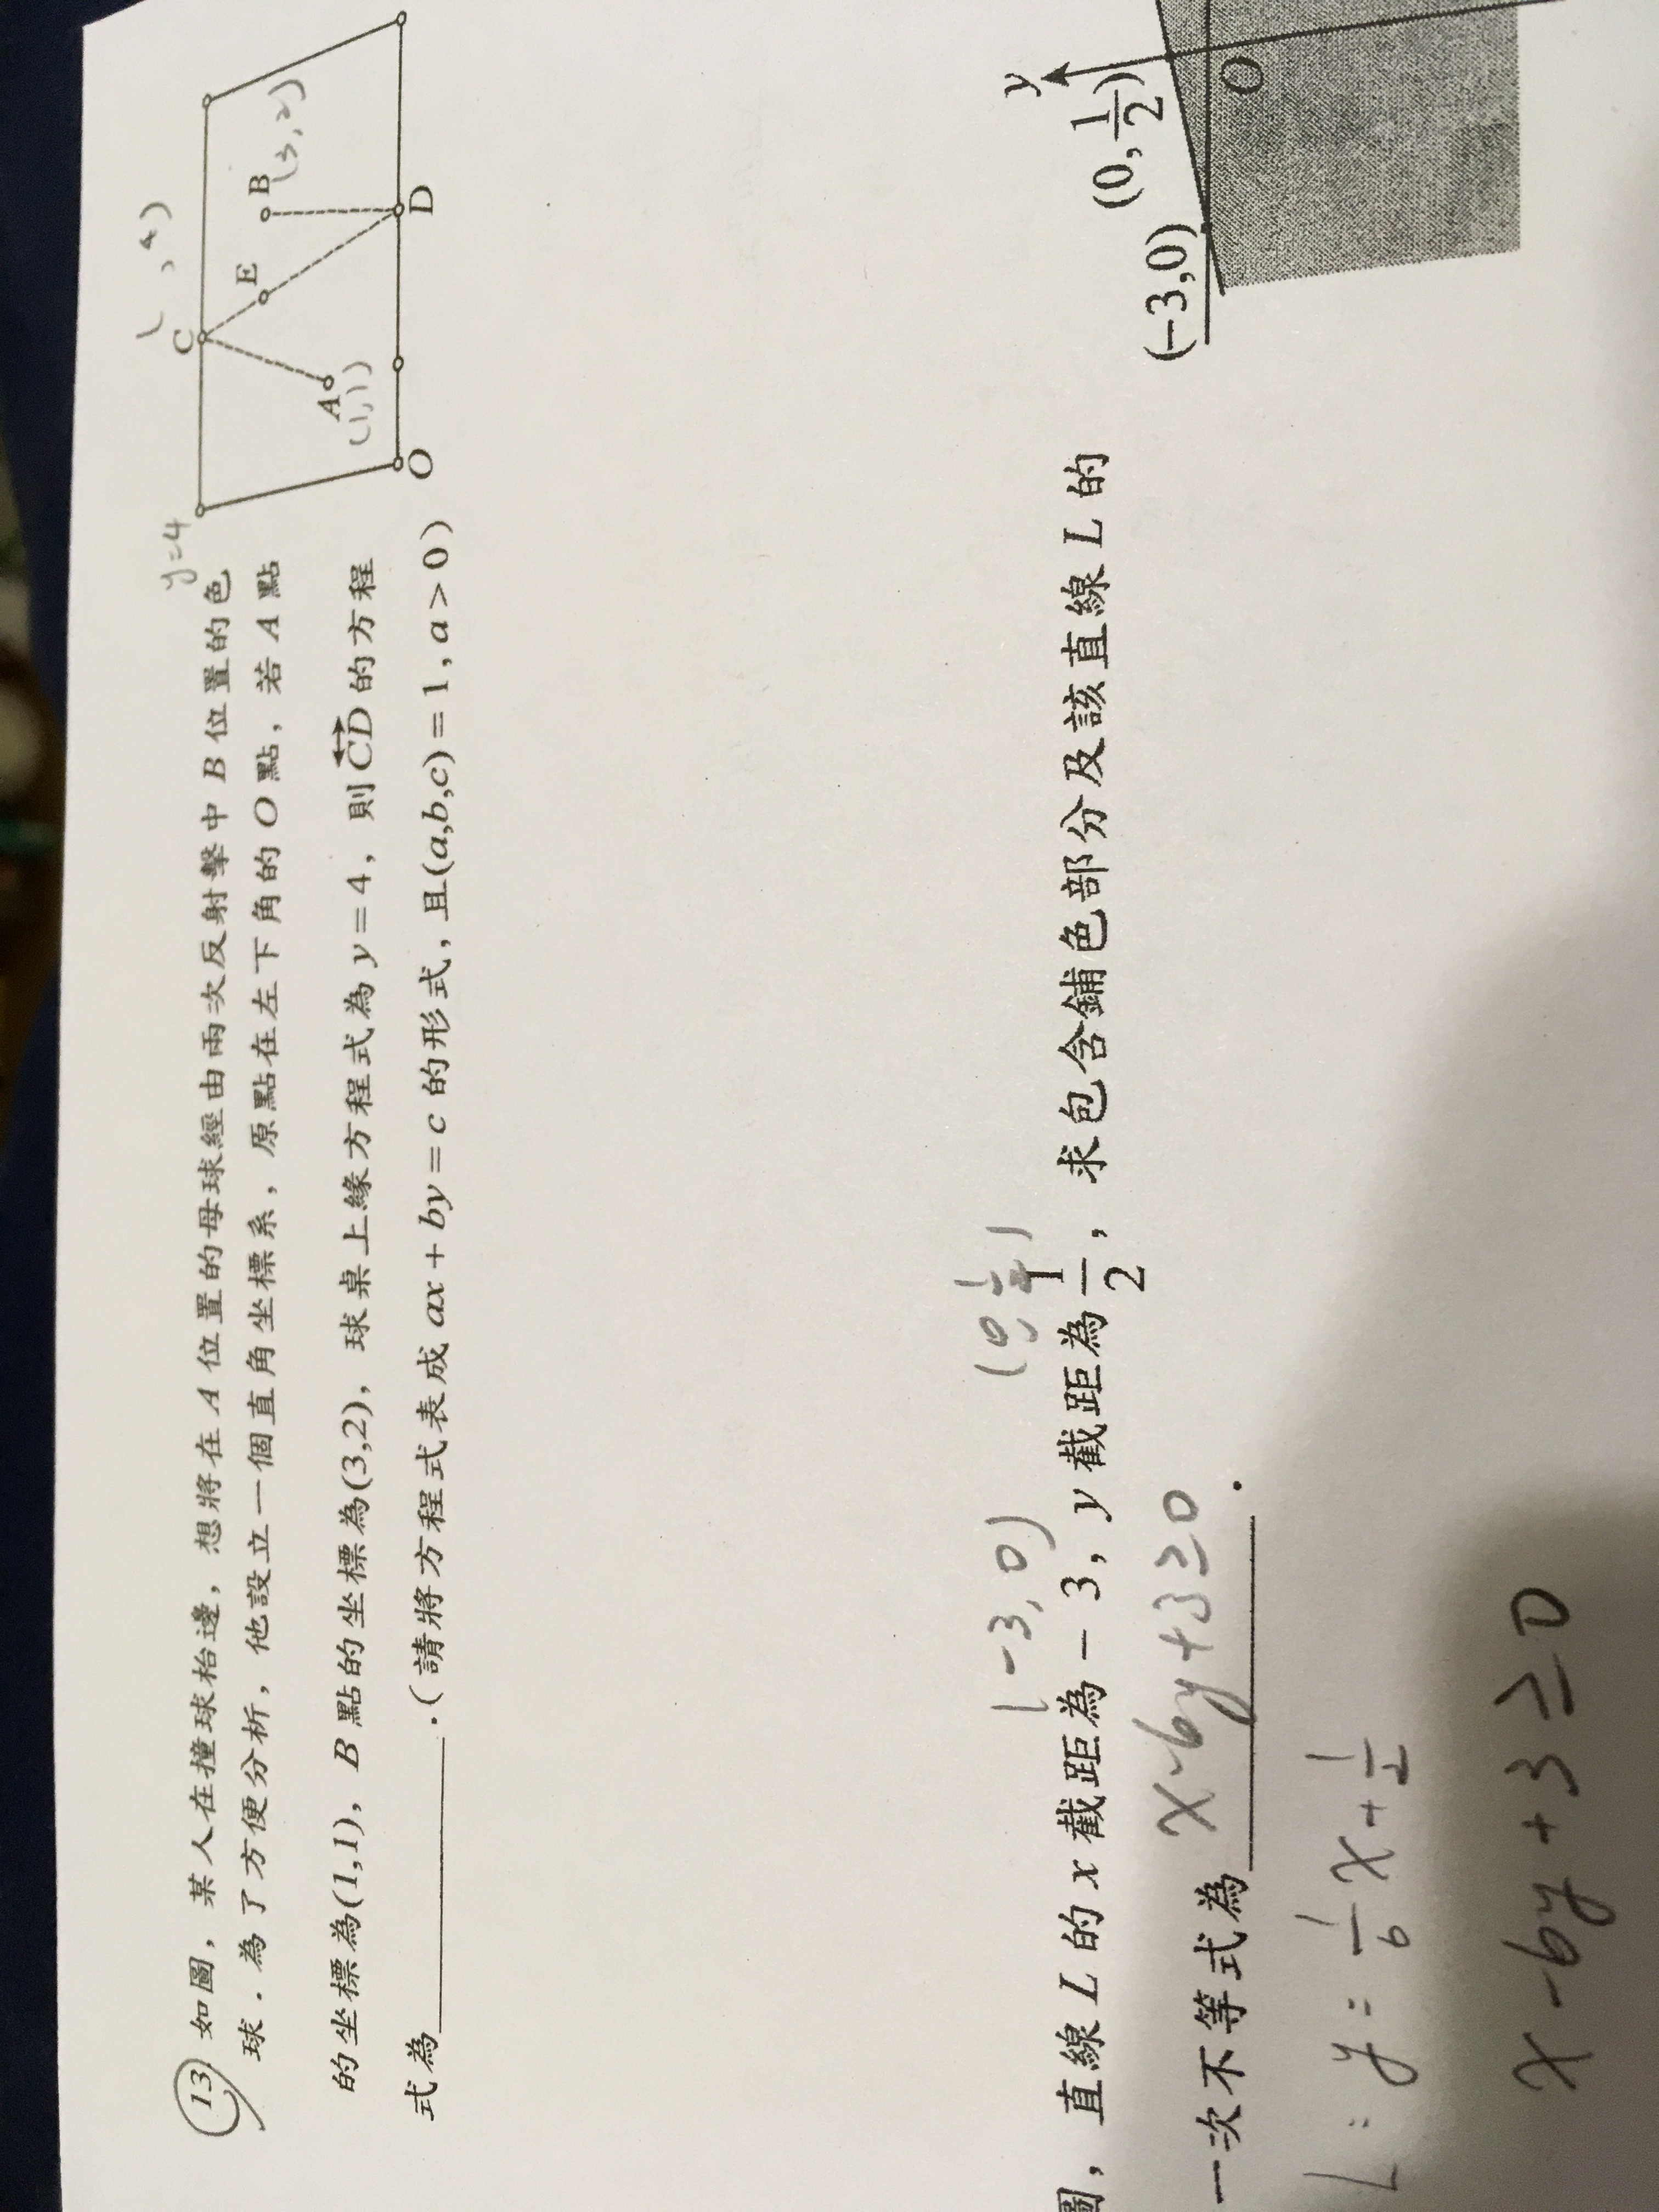 13 如圖，某人在撞球枱邊，想將在 A 位置的母球經由兩次反射擊中 B 位置的色
球．為了方便分析，他設立一個直角坐標系，原點在左下角的 O 點，若 A 點
的坐標為(1,1)，B 點的坐標為(3,2)，球桌上緣方程式為 y=4，則 CD 的方程
式為＿＿＿＿．(請將方程式表成 ax+by=c 的形式，且(a,b,c)=1, a>0)
y=4
( ,4)
C
E
B
(3,2)
A
(1,1)
O
D
(-3,0)
(0,1/2)
圖，直線 L 的 x 截距為－3，y 截距為 1/2，求包含鋪色部分及該直線 L 的
一次不等式為 x-6y+3≥0．
L: y=1/6x+1/2
x-6y+3≥0
y
(-3,0)
(0,1/2)
O